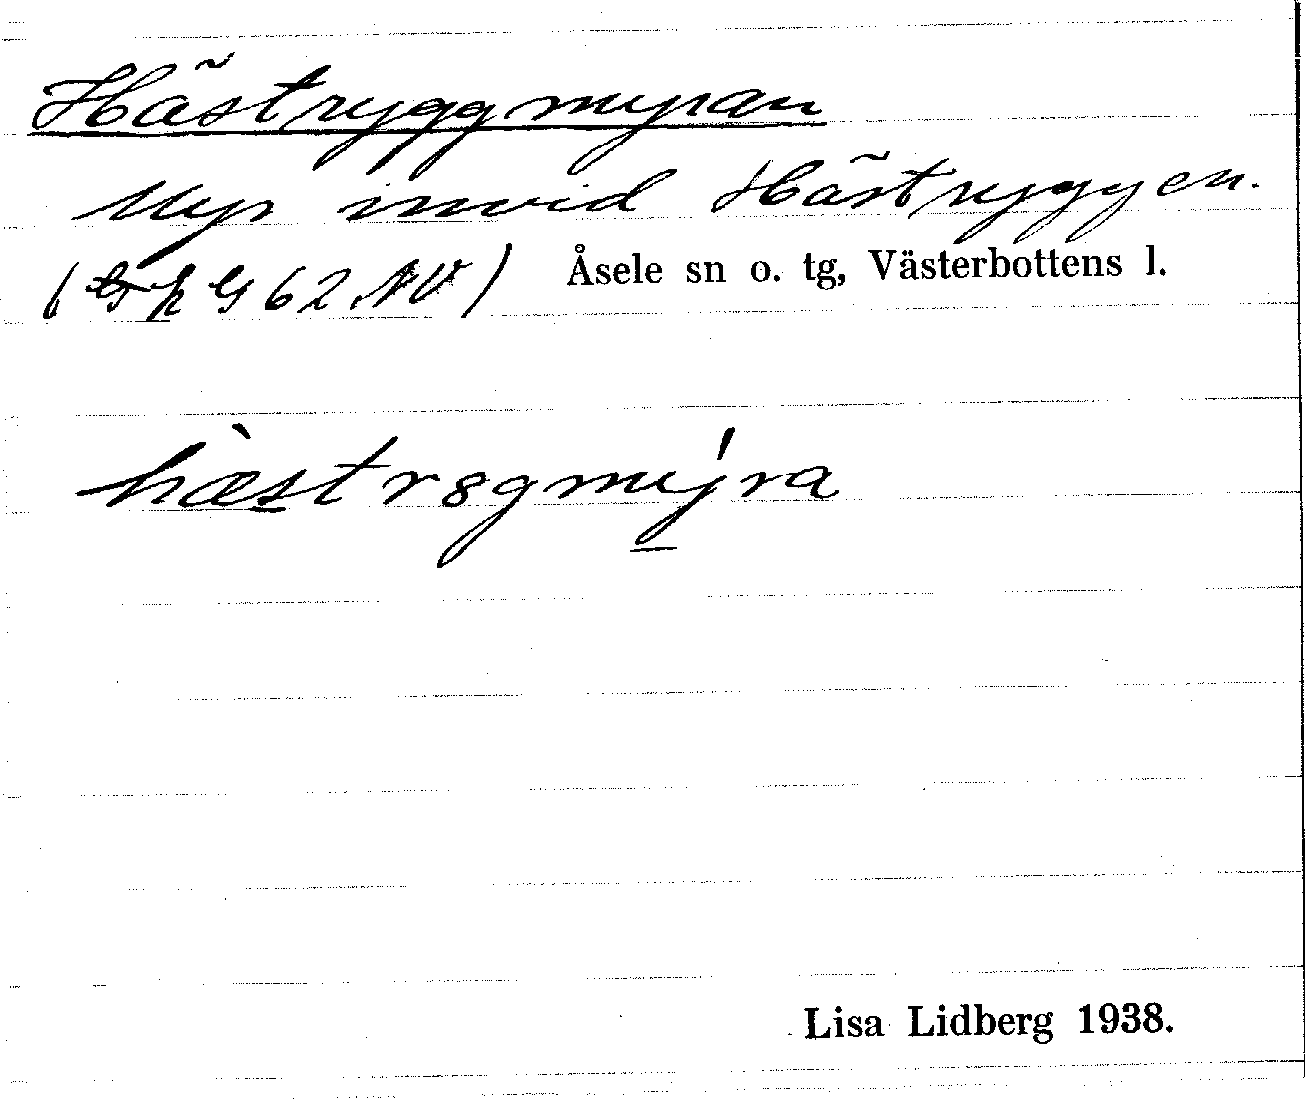 Hästryggmyran
Myr invid Hästryggen.
(G k G 62 NV) Åsele sn o. tg, Västerbottens l.
hæ̀strȣgmýra
Lisa Lidberg 1938.